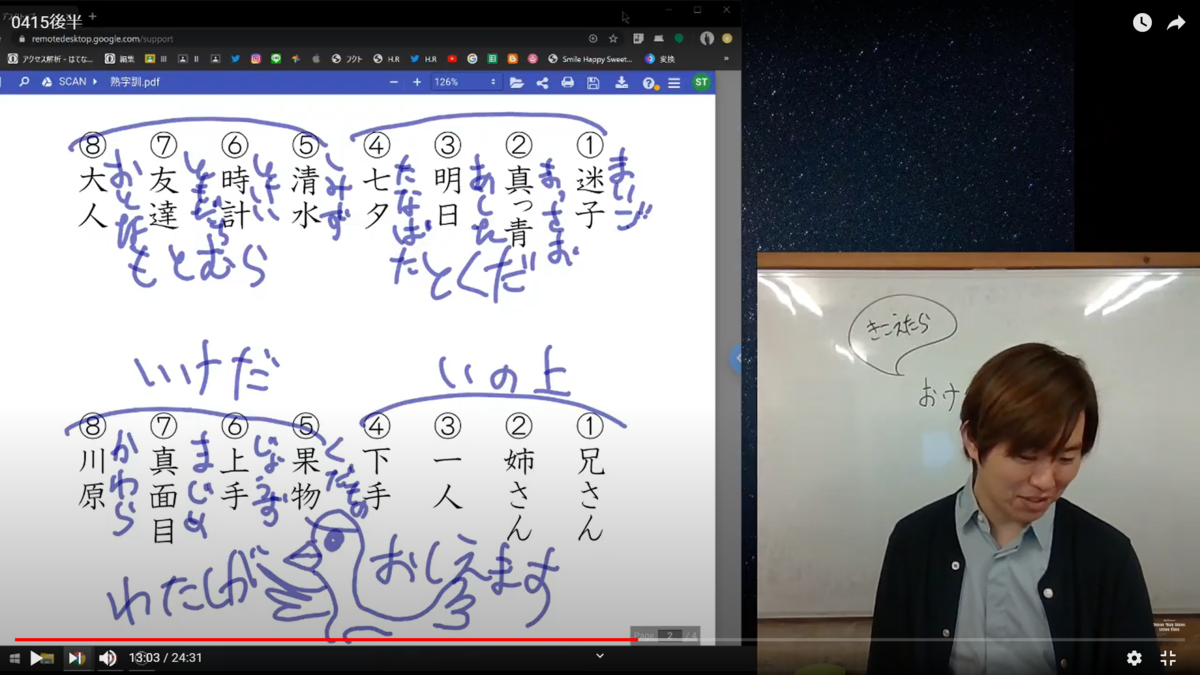 0415後半
remotedesktop.google.com/support
アクセス解析 - はてな...
編集
III
II
フクト
H.R
H.R
Smile Happy Sweet...
変換
SCAN
熟字訓.pdf
126%
ST
① 迷子
まいご
② 真っ青
まっさお
③ 明日
あした
④ 七夕
たなばた
とくだ
⑤ 清水
しみず
⑥ 時計
とけい
⑦ 友達
ともだち
⑧ 大人
おとな
もとむら
いの上
① 兄さん
② 姉さん
③ 一人
④ 下手
いけだ
⑤ 果物
くだもの
⑥ 上手
じょうず
⑦ 真面目
まじめ
⑧ 川原
かわら
わたしが
おしえます
きこえたら
おけ
Page 2 / 4
13:03 / 24:31